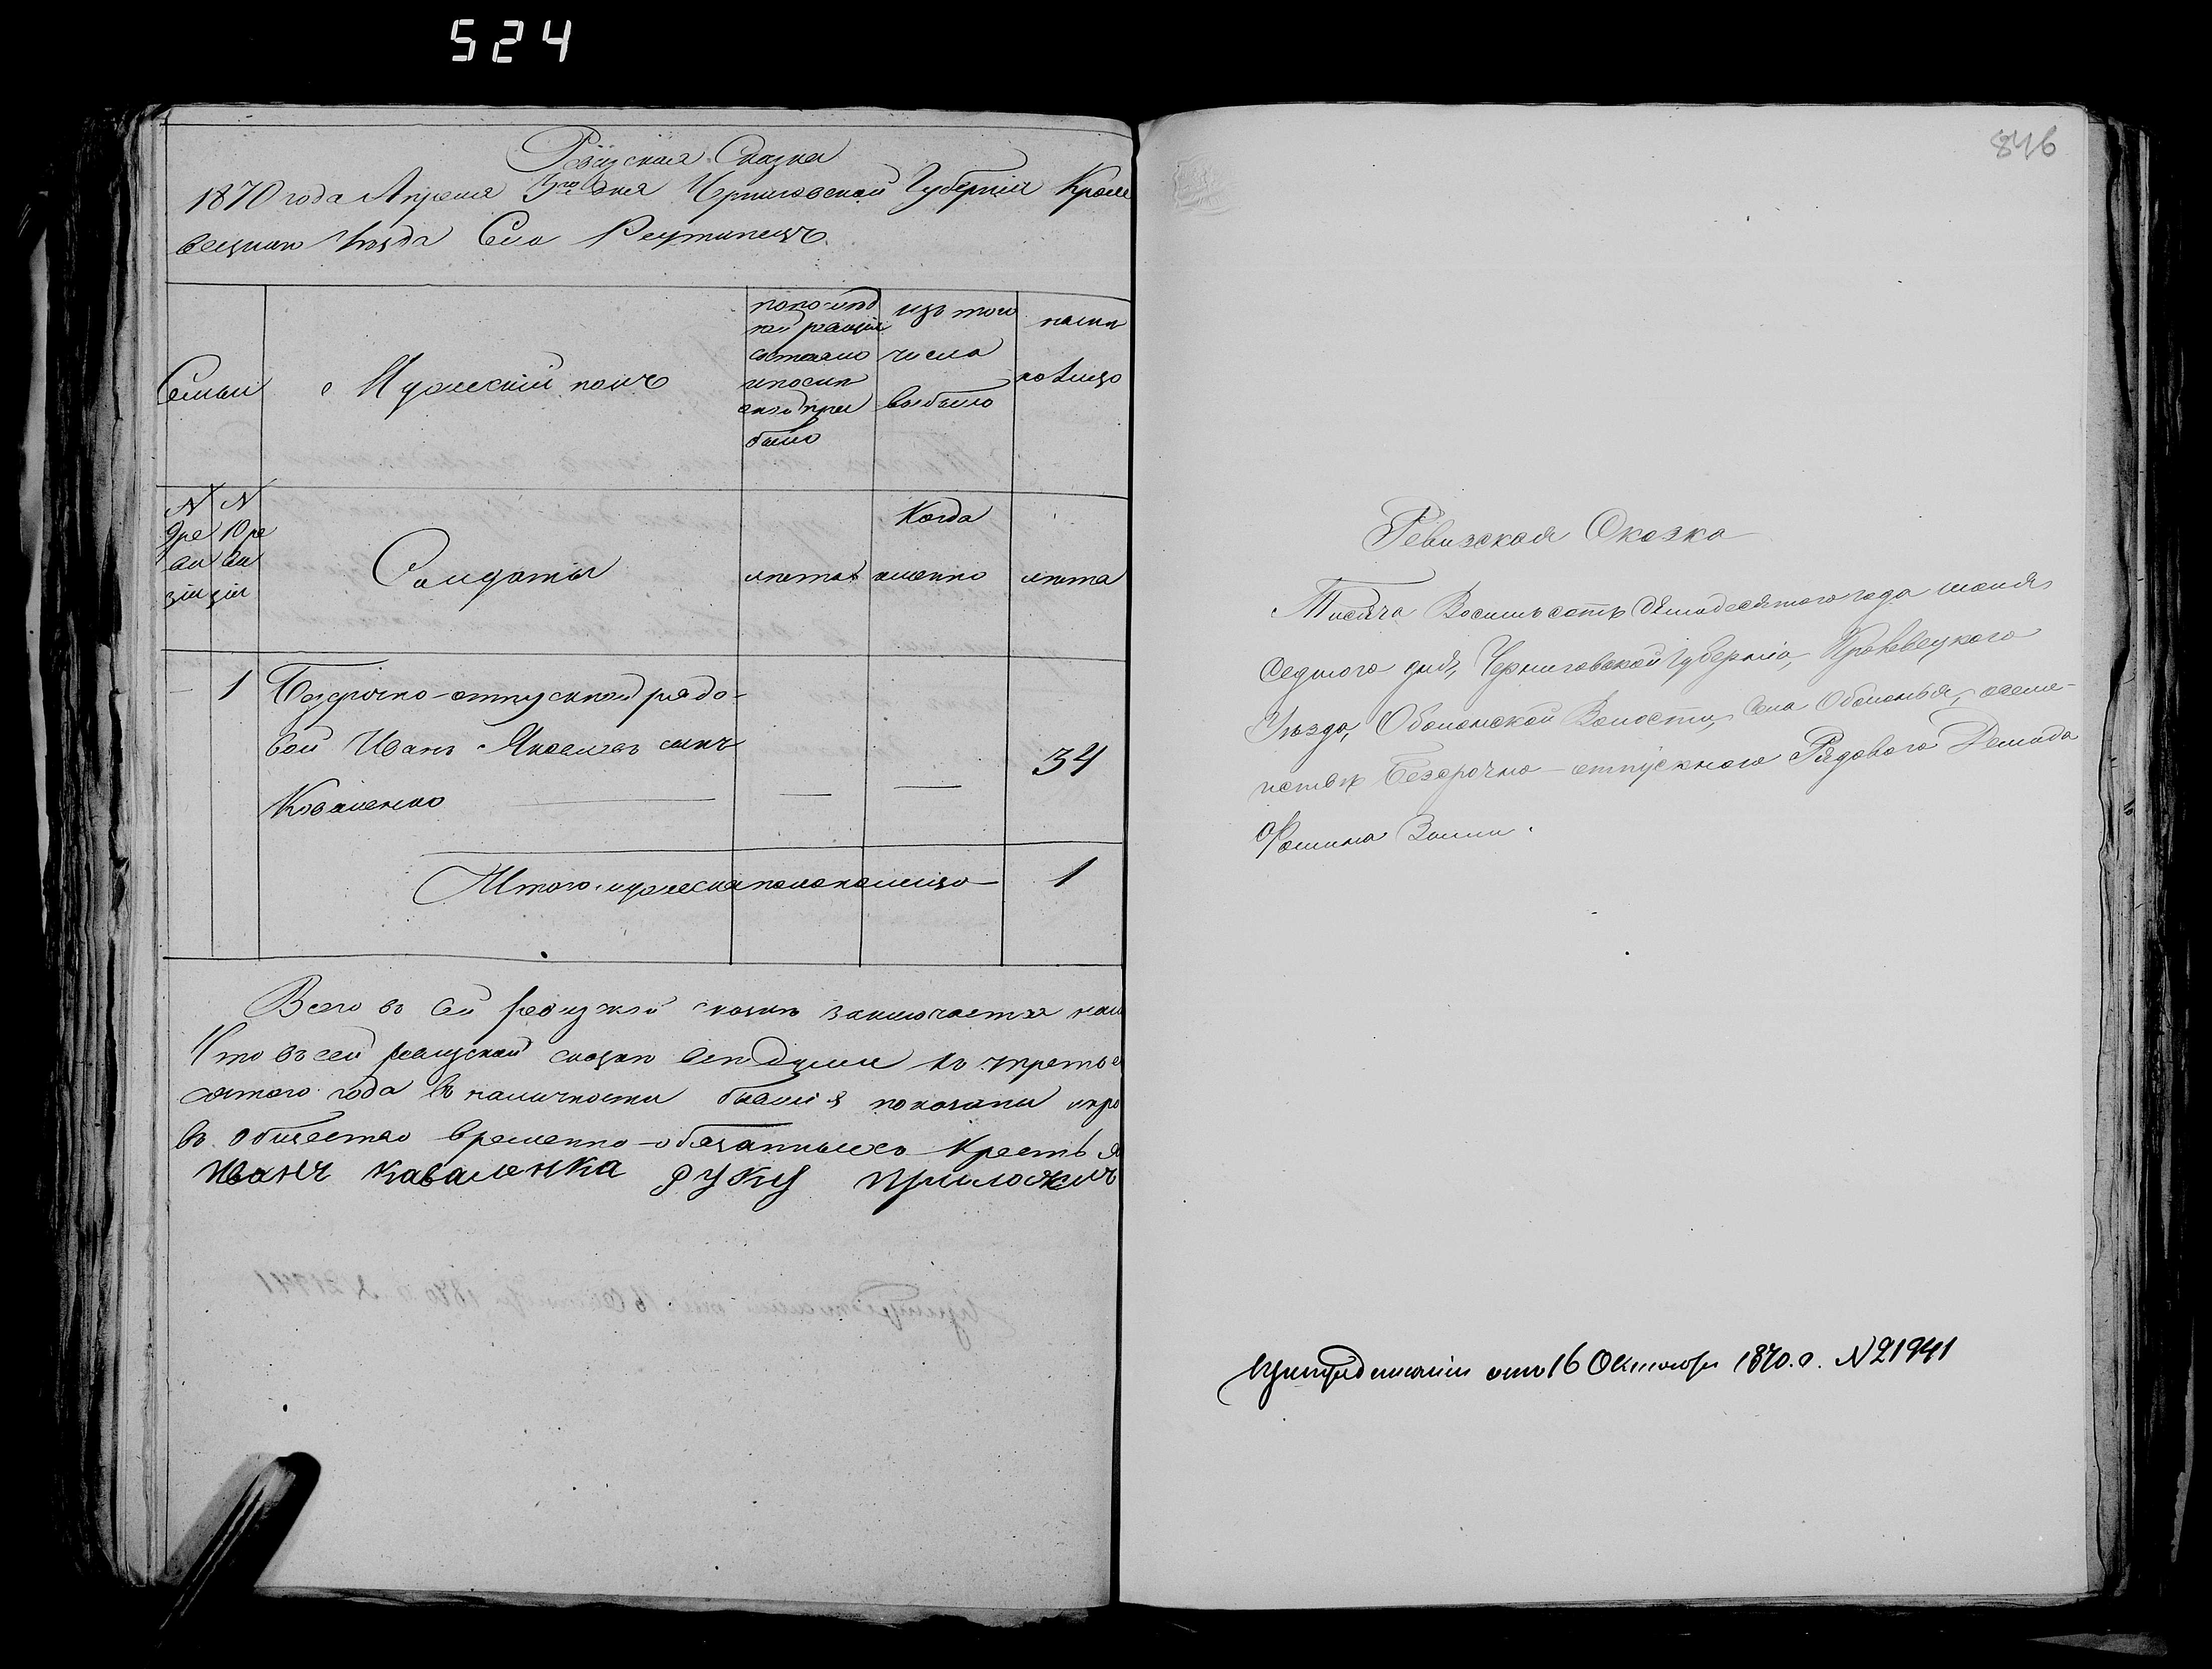 524
Ревизская Сказка
1870 года Апреля 3го дня Черниговской Губерніи Кроле
вецкаго Уѣзда Села Реутинецъ
Семьи
Мужескій полъ
по послѣд
ней ревизіи
состояло
и послѣ
того при
было
изъ того
числа
выбыло
нынѣ
на лицо
N 9 ре
ви
зіи
N 10 ре
ви
зіи
Солдаты
лѣта
Когда
именно
лѣта
1 Безсрочно-отпускной рядо-
вой Иванъ Яковлевъ сынъ
Коваленко
34
Итого мужеска пола на лицо 1
Всего въ сей ревизкой сказкѣ заключается нал
Что въ сей ревизской сказкѣ всѣ души къ третье
сятого года въ наличности бывшія показаны и про
въ общество временно-обязанныхъ крестья
Иванъ Каваленка руку приложилъ
846
Ревизская Сказка
Тисяча Восимьсотъ Семъдесятого года
Седмого дня, Черниговской Губерніи, Кролевецкого
Уѣзда, Оболонской Волости, Села Оболонья, о семе-
йствѣ Безсрочно-отпускного Рядового Демида
Фомина
При предписаніи отъ 16 Октября 1870 г. N 21941